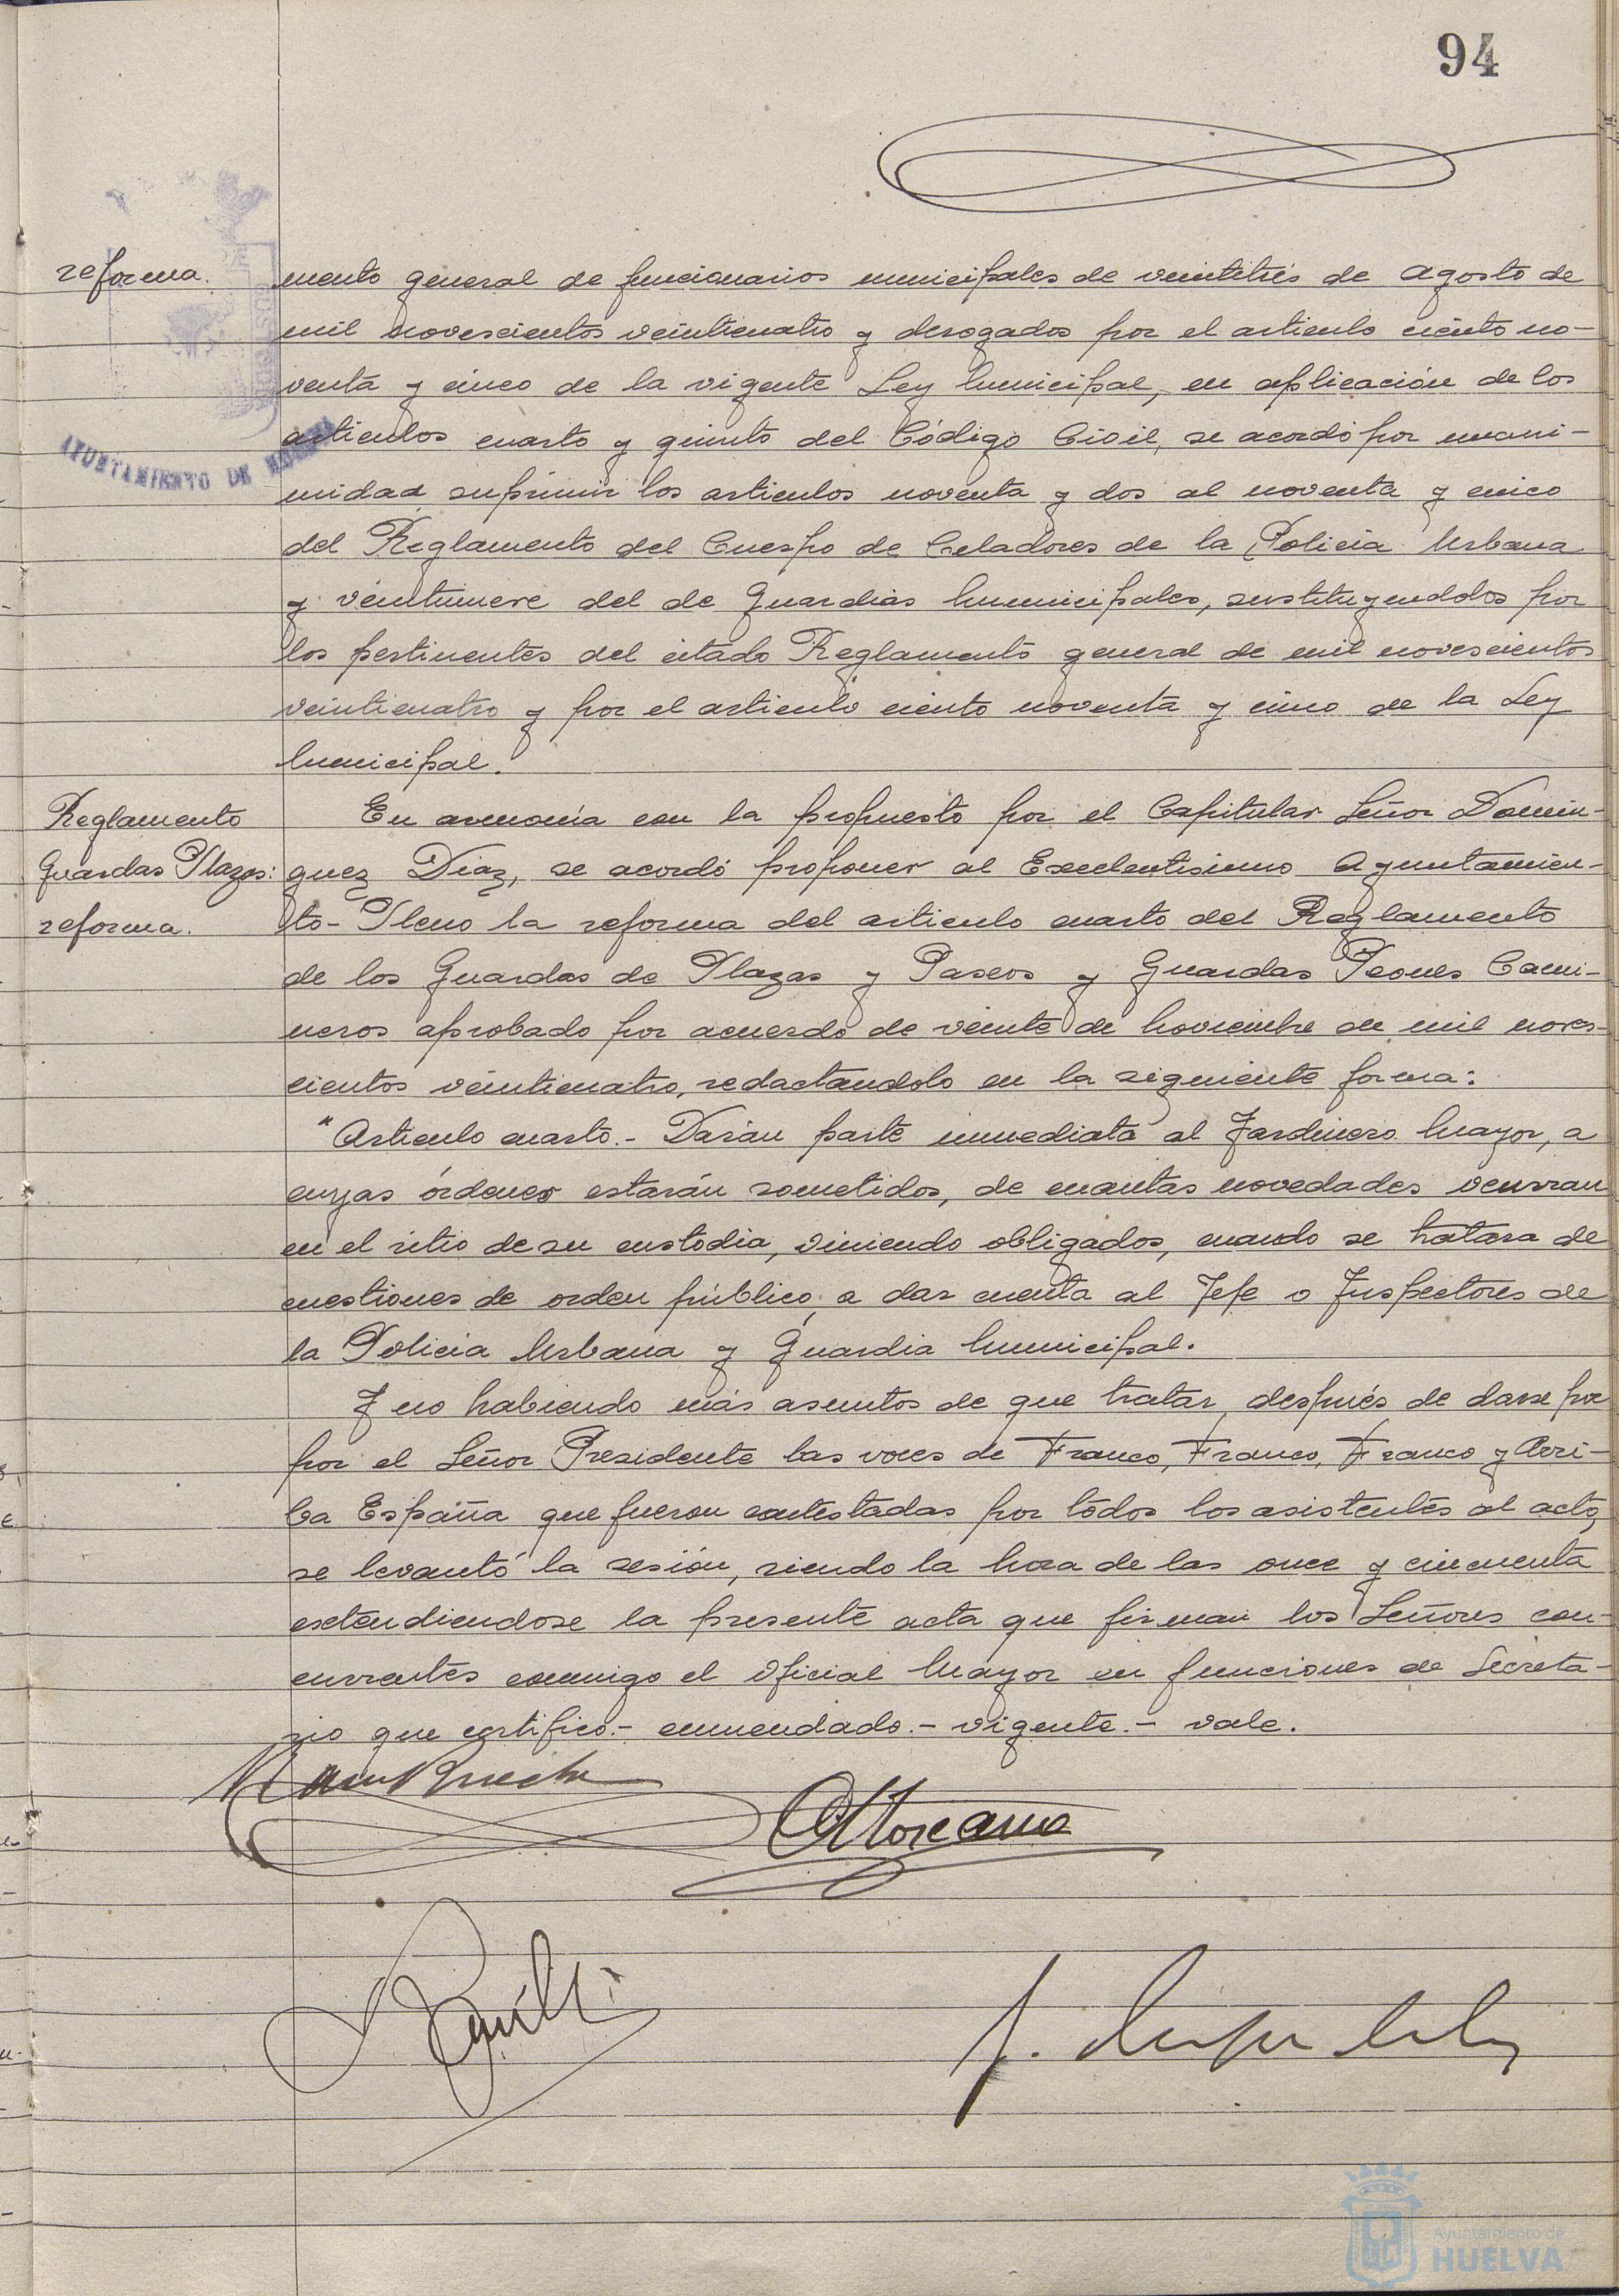 94
reforma.
mento general de funcionarios municipales de veintitrés de agosto de
mil novescientos veinticuatro y derogados por el articulo ciento no-
venta y cinco de la vigente Ley Municipal, en aplicación de los
articulos cuarto y quinto del Código Civil, se acordó por unani-
AYUNTAMIENTO DE HUELVA
midad suprimir los articulos noventa y dos al noventa y cinco
del Reglamento del Cuerpo de Celadores de la Policia Urbana
y veintinueve del de Guardias Municipales, sustituyendolos por
los pertinentes del citado Reglamento general de mil novescientos
veinticuatro y por el articulo ciento noventa y cinco de la Ley
Municipal.
Reglamento
Guardas Plazas:
reforma.
En armonia con la propuesto por el Capitular Señor Domin-
guez Diaz, se acordó proponer al Excelentisimo Ayuntamien-
to-Pleno la reforma del articulo cuarto del Reglamento
de los Guardas de Plazas y Paseos y Guardas Peones Cami-
neros aprobado por acuerdo de veinte de Noviembre de mil noves-
cientos veinticuatro, redactandolo en la siguiente forma:
"Articulo cuarto.- Darán parte inmediata al Jardinero Mayor, a
cuyas órdenes estarán sometidos, de cuantas novedades ocurran
en el sitio de su custodia, viniendo obligados, cuando se tratara de
cuestiones de orden público, a dar cuenta al Jefe o Inspectores de
la Policia Urbana y Guardia Municipal.
Y no habiendo más asuntos de que tratar, después de darse por
por el Señor Presidente las voces de Franco, Franco, Franco y Arri-
ba España que fueron contestadas por todos los asistentes al acto,
se levantó la sesión, siendo la hora de las once y cincuenta
extendiendose la presente acta que firman los Señores con-
currentes conmigo el Oficial Mayor en funciones de Secreta-
rio que certifico.- enmendado.- vigente.- vale.
Ayuntamiento de
HUELVA